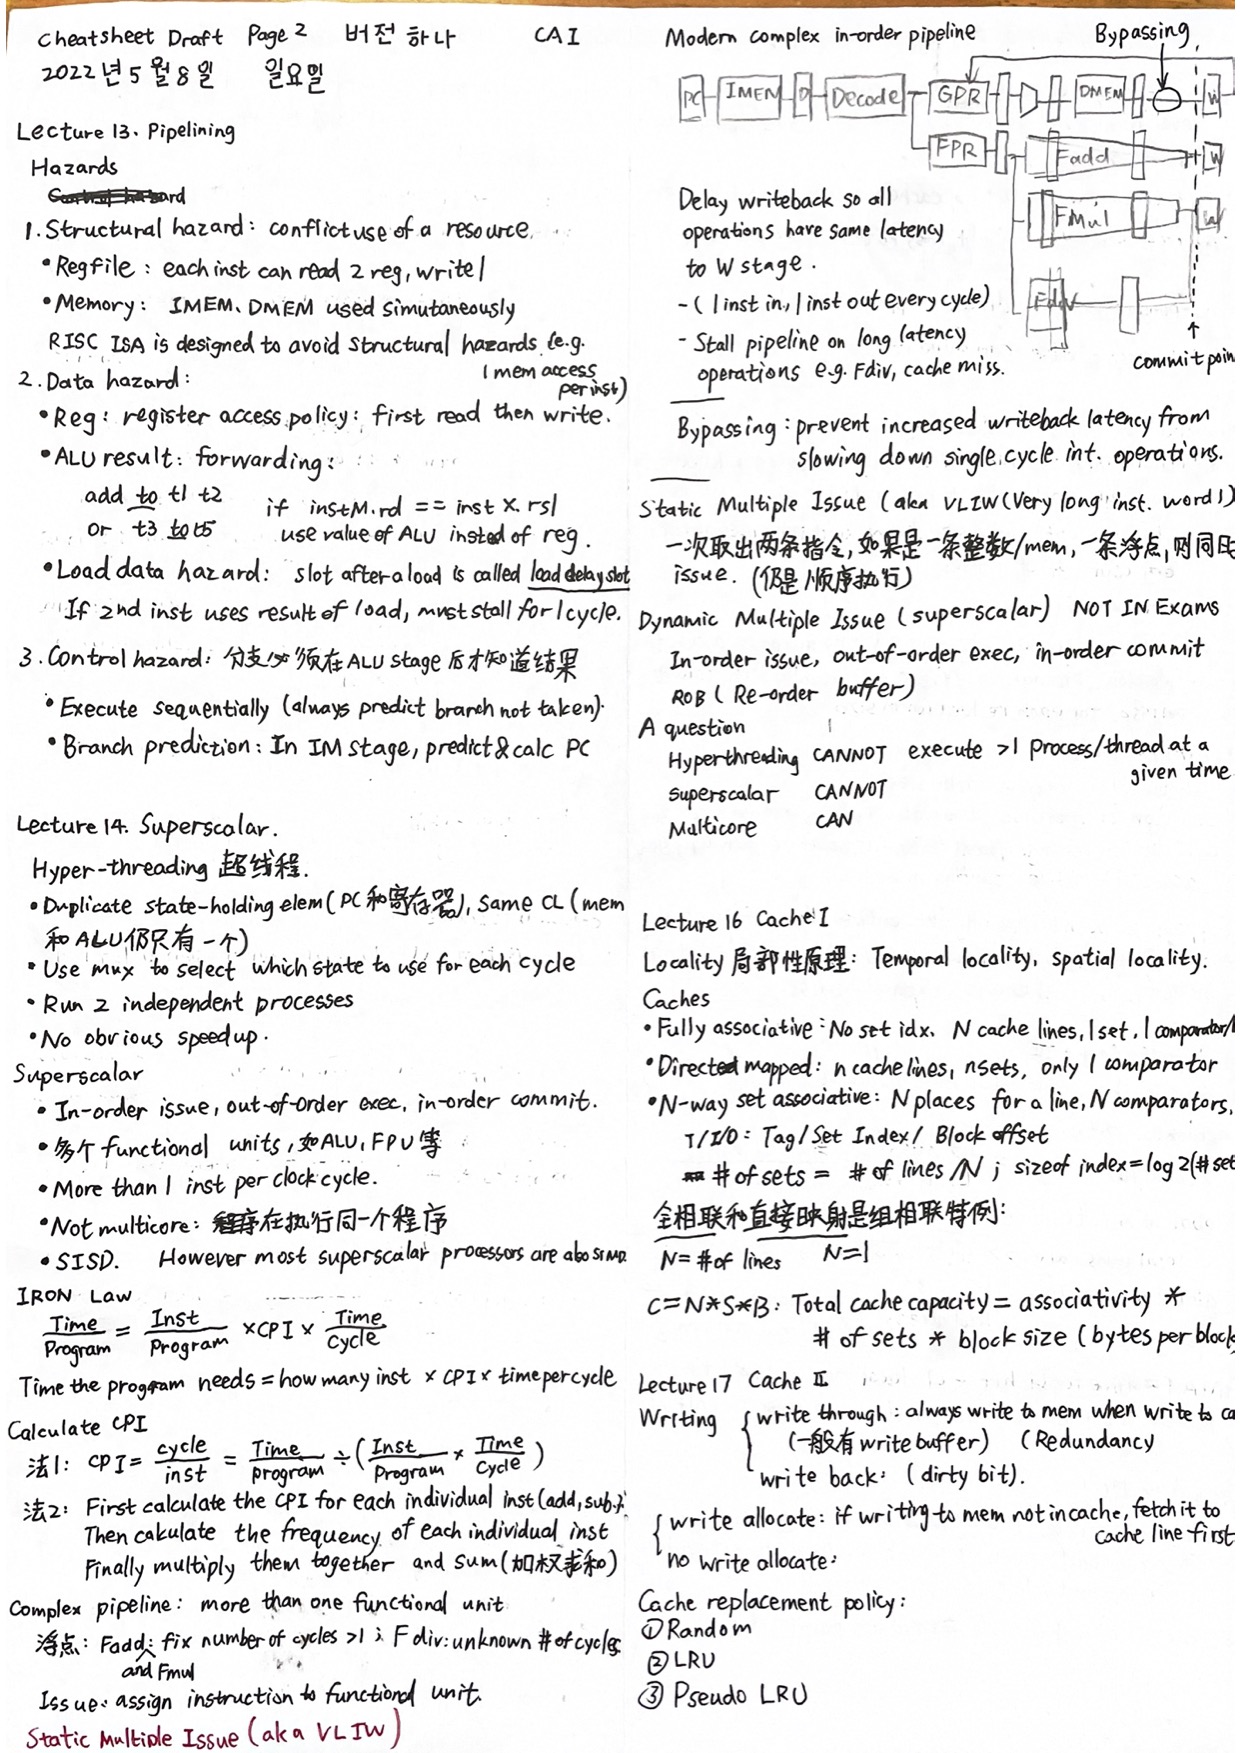 Cheatsheet Draft Page 2 버전 하나 CAI
2022년 5월 8일 일요일
Lecture 13. Pipelining
Hazards
Control hazard
1. Structural hazard: conflict use of a resource.
• Regfile: each inst can read 2 reg, write 1
• Memory: IMEM、DMEM used simutaneously
RISC ISA is designed to avoid structural hazards (e.g.
1 mem access
per inst)
2. Data hazard:
• Reg: register access policy: first read then write.
• ALU result: forwarding:
add t0 t1 t2
or t3 t0 t5
if instM.rd == instX.rs1
use value of ALU insted of reg.
• Load data hazard: slot after a load is called load delay slot
If 2nd inst uses result of load, must stall for 1 cycle.
3. Control hazard: 分支必须在ALU stage后才知道结果
• Execute sequentially (always predict branch not taken).
• Branch prediction: In IM stage, predict & calc PC
Lecture 14. Superscalar.
Hyper-threading 超线程.
• Duplicate state-holding elem (PC和寄存器), same CL (mem
和ALU仍只有一个)
• Use mux to select which state to use for each cycle
• Run 2 independent processes
• No obvious speedup.
Superscalar
• In-order issue, out-of-order exec, in-order commit.
• 多个functional units, 如ALU, FPU等
• More than 1 inst per clock cycle.
• Not multicore: 程序在执行同一个程序
• SISD. However most superscalar processors are also SIMD.
IRON Law
Time/Program = Inst/Program × CPI × Time/Cycle
Time the program needs = how many inst × CPI × time per cycle
Calculate CPI
法1: CPI = cycle/inst = Time/program ÷ (Inst/Program × Time/Cycle)
法2: First calculate the CPI for each individual inst (add, sub..).
Then cakulate the frequency of each individual inst
Finally multiply them together and sum (加权求和)
Complex pipeline: more than one functional unit
浮点: Fadd and Fmul: fix number of cycles >1; Fdiv: unknown # of cycles
Issue: assign instruction to functional unit.
Static Multiple Issue (aka VLIW)
Modern complex in-order pipeline Bypassing
PC IMEM D Decode GPR DMEM W
FPR Fadd W
Fmul W
Fdiv
commit poin
Delay writeback so all
operations have same latency
to W stage.
- (1 inst in, 1 inst out every cycle)
- Stall pipeline on long latency
operations e.g. Fdiv, cache miss.
Bypassing: prevent increased writeback latency from
slowing down single cycle int. operations.
Static Multiple Issue (aka VLIW (Very long inst. word))
一次取出两条指令, 如果是一条整数/mem, 一条浮点, 则同时
issue. (仍是顺序执行)
Dynamic Multiple Issue (superscalar) NOT IN Exams
In-order issue, out-of-order exec, in-order commit
ROB (Re-order buffer)
A question
Hyperthreading CANNOT execute >1 Process/thread at a
given time
superscalar CANNOT
Multicore CAN
Lecture 16 Cache I
Locality 局部性原理: Temporal locality, spatial locality.
Caches
• Fully associative: No set idx. N cache lines, 1 set, 1 comparator/l
• Directed mapped: n cache lines, n sets, only 1 comparator
• N-way set associative: N places for a line, N comparators.
T/I/O: Tag/Set Index/ Block offset
# of sets = # of lines /N ; sizeof index = log2(# set
全相联和直接映射是组相联特例:
N = # of lines N=1
C=N*S*B: Total cache capacity = associativity *
# of sets * block size (bytes per block
Lecture 17 Cache II
Writing
write through: always write to mem when write to ca
(一般有write buffer) (Redundancy
write back: (dirty bit).
write allocate: if writing to mem not in cache, fetch it to
cache line first
no write allocate:
Cache replacement policy:
① Random
② LRU
③ Pseudo LRU